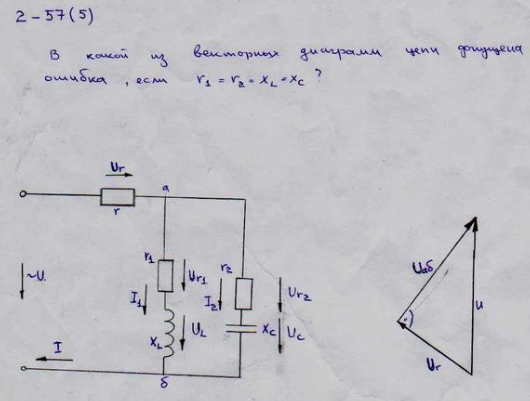 2-57(5)
В какой из векторных диаграмм цепи допущена
ошибка, если r₁ = r₂ = x_L = x_C ?
U_r
a
r
r₁
r₂
~U
U_r1
U_r2
I₁
I₂
U_L
x_L
x_C
U_C
I
б
U_аб
U
U_r